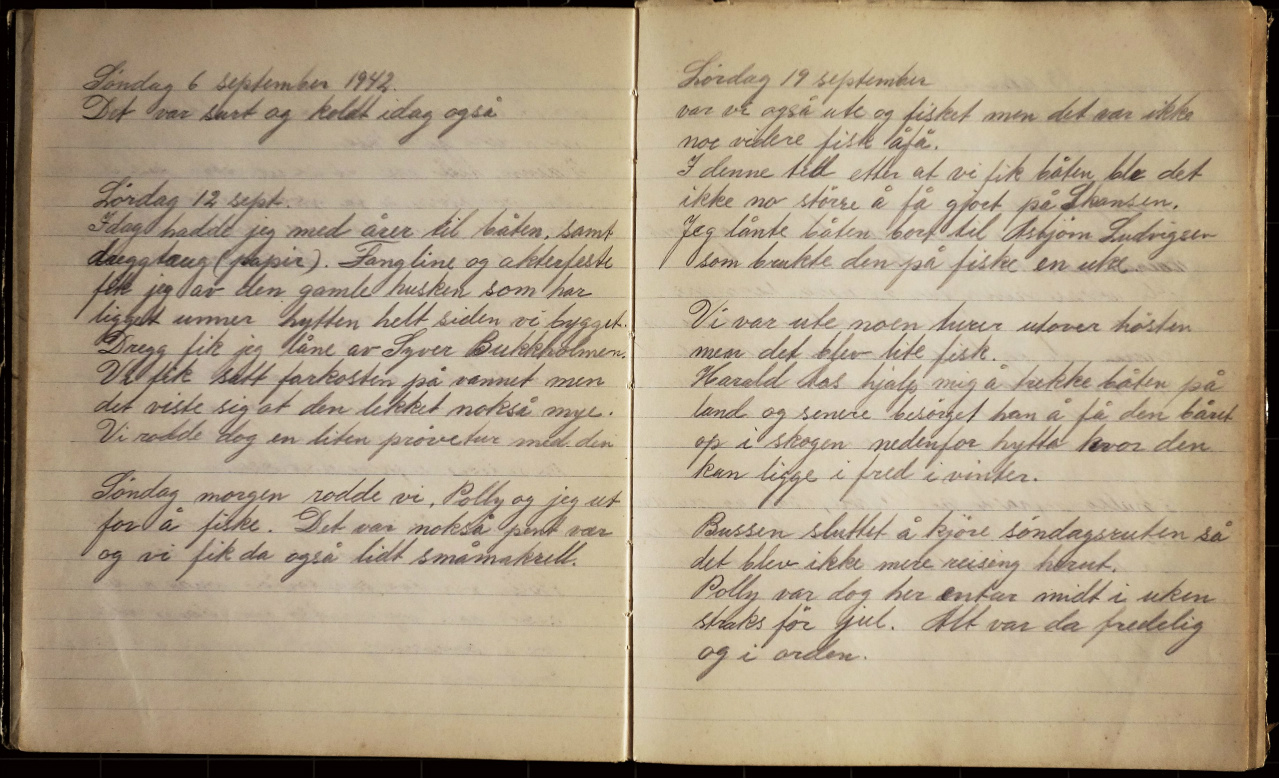 Søndag 6 september 1942.
Det var surt og koldt idag også
Lørdag 12 sept
Idag hadde jeg med årer til båten, samt
dreggtaug (papir). Fangline og akterfeste
fik jeg av den gamle husken som har
ligget unner hytten helt siden vi bygget.
Dregg fik jeg låne av Syver Bukkholmen.
Vi fik satt farkosten på vannet men
det viste sig at den lekket nokså mye.
Vi rodde dog en liten prøvetur med den
Søndag morgen rodde vi, Polly og jeg ut
for å fiske. Det var nokså pent vær
og vi fik da også lidt småmakrell.
Lørdag 19 september
var vi også ute og fisket men det var ikke
noe videre fisk å få.
I denne tell etter at vi fik båten ble det
ikke no større å få gjort på Skansen.
Jeg lånte båten bort til Asbjørn Ludvigsen
som brukte den på fiske en uke.
Vi var ute noen turer utover høsten
men det blev lite fisk.
Harald Aas hjalp mig å trekke båten på
land og senere besørget han å få den båret
op i skogen nedenfor hytta hvor den
kan ligge i fred i vinter.
Bussen sluttet å kjøre søndagsruten så
det blev ikke mere reising herut.
Polly var dog her en tur midt i uken
straks før jul. Alt var da fredelig
og i orden.